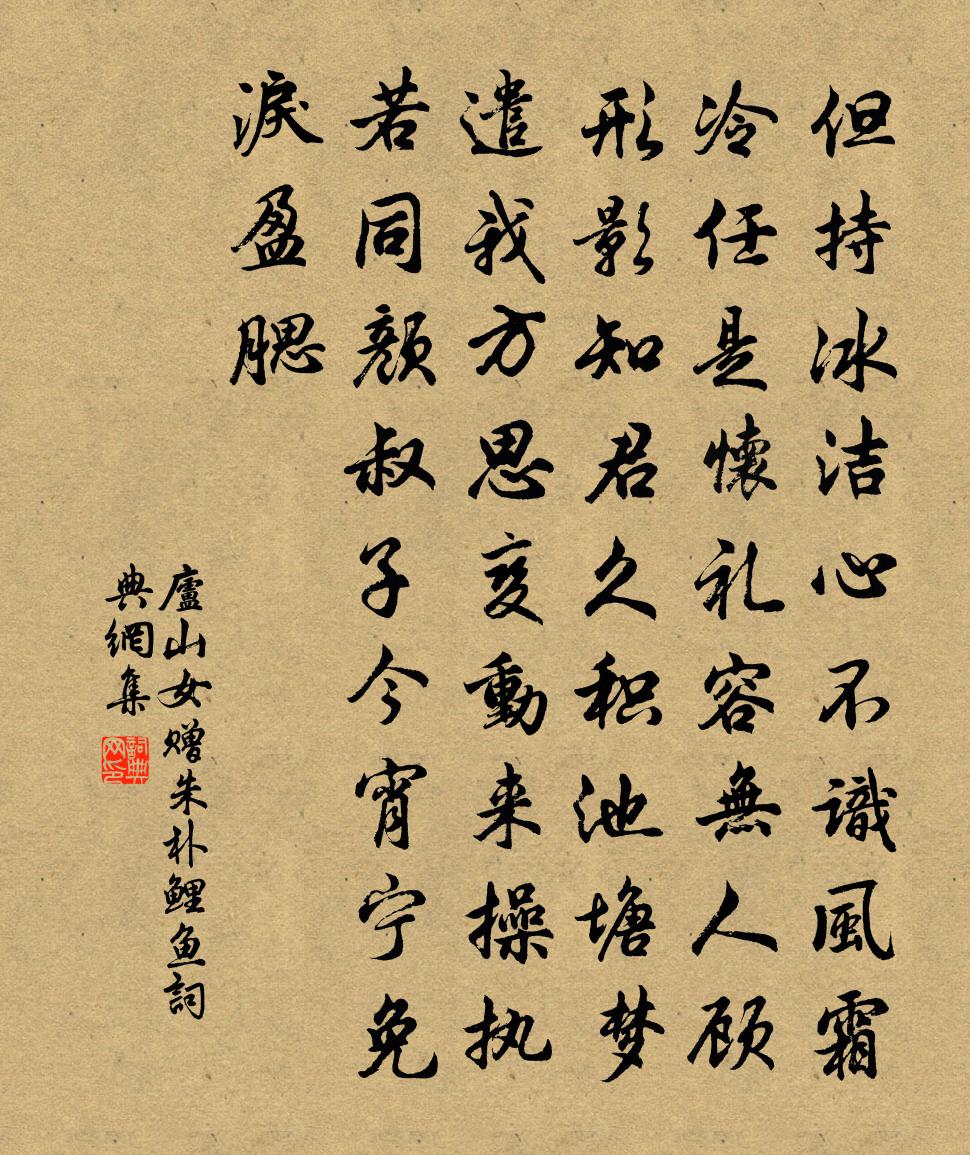 但持冰洁心不識風霜
冷任是懷礼容無人顾
形影知君久积池塘梦
遣我方思变動来操执
若同颜叔子今宵宁免
淚盈腮
廬山女赠朱朴鲤鱼詞
典網集
詞典网印